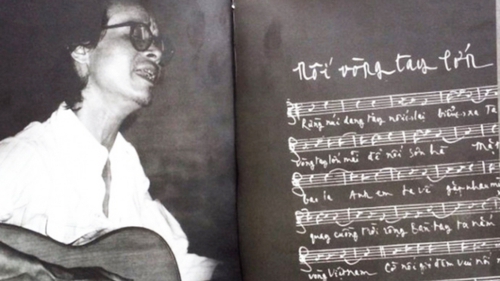 Nối vòng tay lớn
Rừng núi dang tay nối lại biển xa Ta
vòng tay lớn mãi để nối sơn hà Mặ
bao la Anh em ta về gặp nhau m
quay cuồng trời rộng Bàn tay ta nắm
vòng Việt Nam Cờ nối gió đêm vui nối n